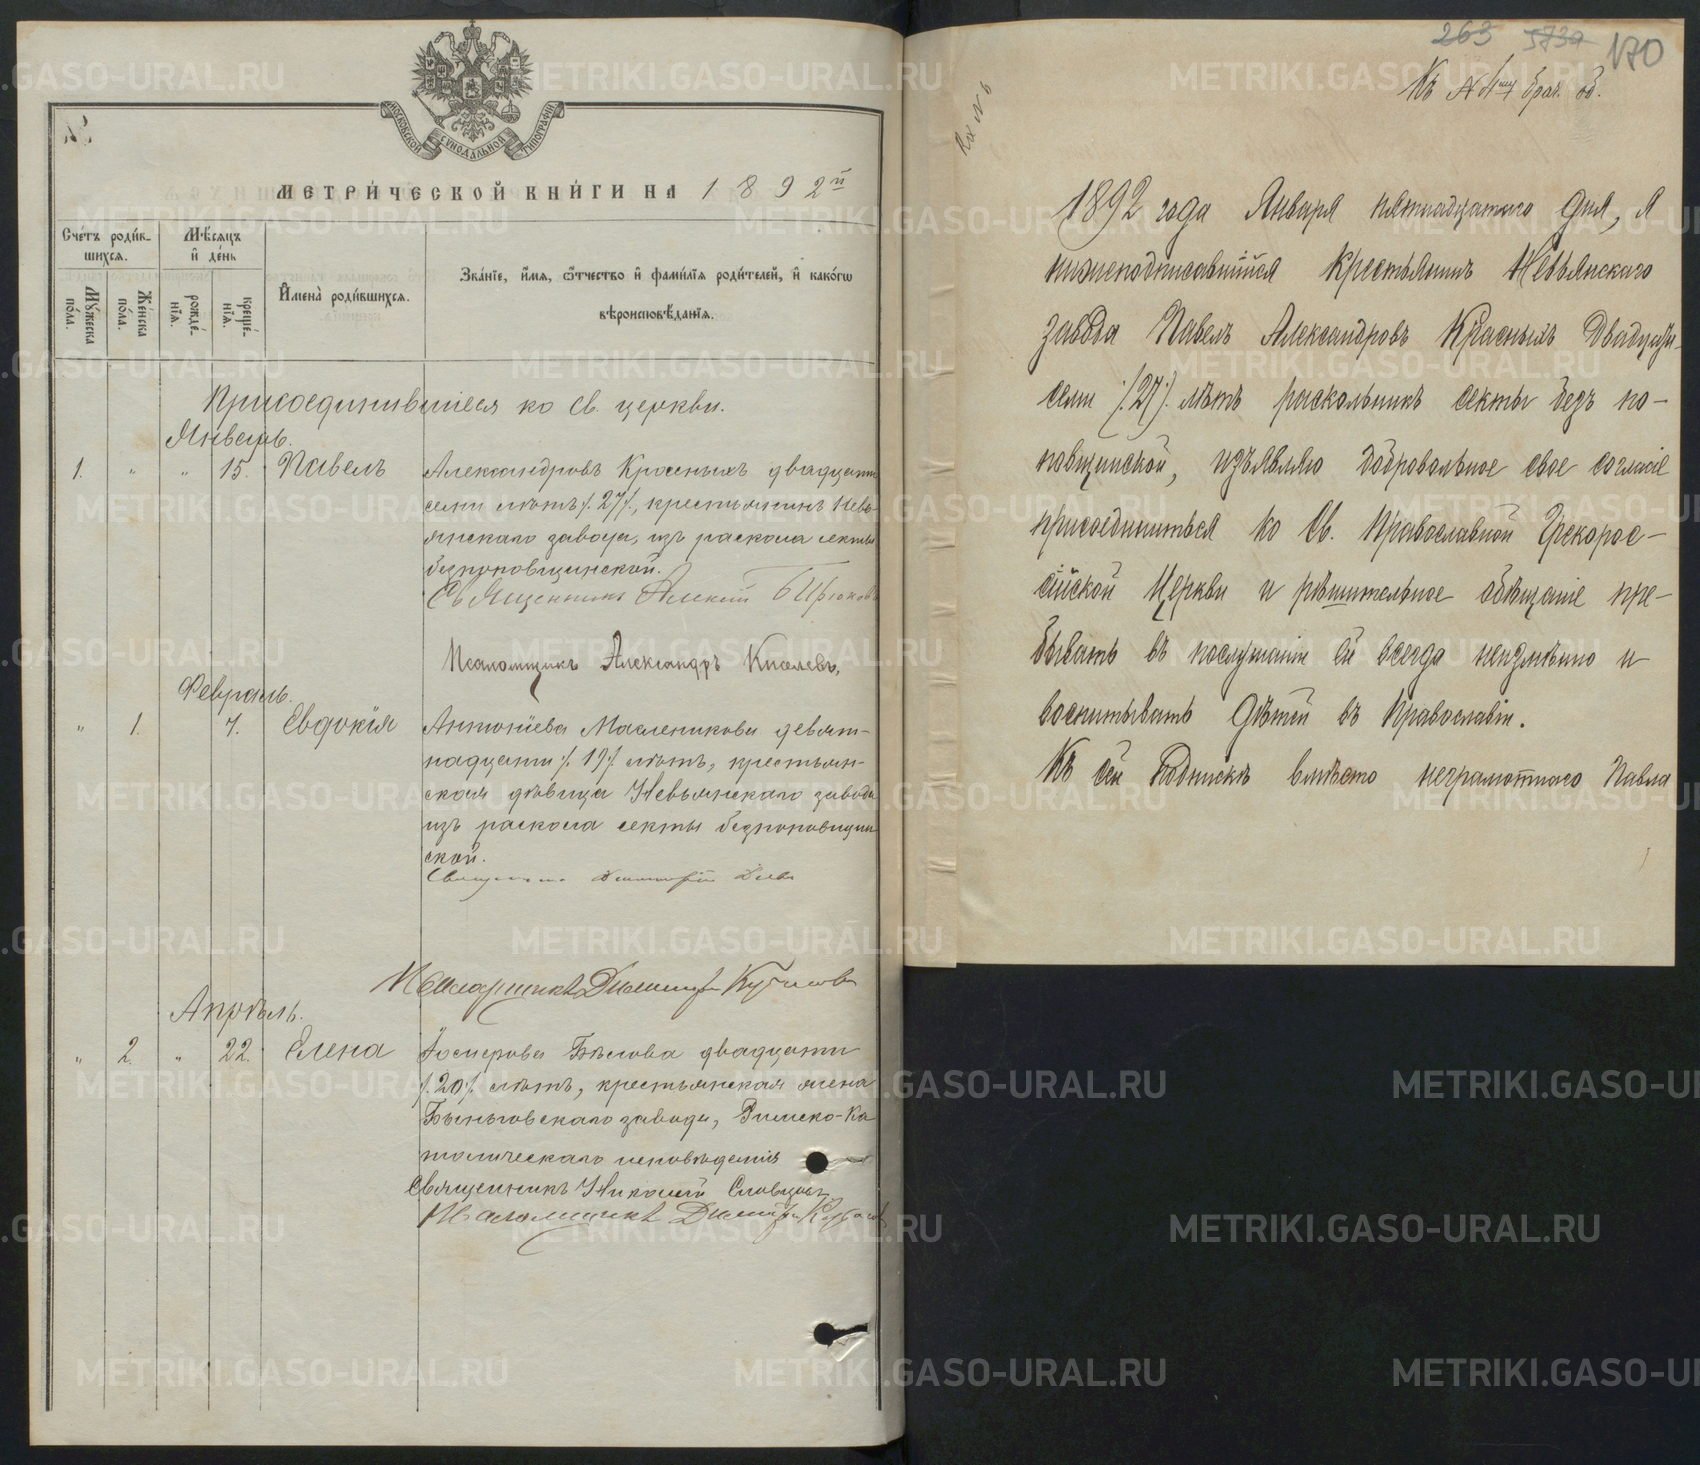 МОСКОВСКОЙ СѴНОДАЛЬНОЙ ТИПОГРАФІИ
МЕТРИ́ЧЕСКОЙ КНИ́ГИ НА 1892й
Сче́тъ роди́в-
шихся.
Мѣ́сяцъ
и҆ де́нь
И҆мена̀ роди́вшихся.
Зва́нїе, и҆́мя, ѻ҆́тчество и҆ фами́лїя роди́телей, и҆ какогѡ
вѣроисповѣ́данїя.
Му́жеска
по́ла.
Же́нска
по́ла.
рожде́-
нїя.
креще́-
нїя.
Присоединившіеся ко св. церкви.
Январь.
1. " " 15. Павелъ
Александровъ Красныхъ двадцати
семи лѣтъ /.27/., крестьянинъ Невь-
янскаго завода, изъ раскола секты
безпоповщинской.
Священникъ Алексій Бирюковъ
Псаломщикъ Александръ Киселевъ,
Февраль.
" 1. 7. Евдокія
Антоніева Масленикова девят-
надцати /.19/. лѣтъ, крестьян-
ская дѣвица Невьянскаго завода
изъ раскола секты безпоповщин-
ской.
Священникъ Димитрій
Псаломщикъ Димитрій
Апрѣль.
" 2. " 22. Елена
Іосифова Бѣлова двадцати
/.20/. лѣтъ, крестьянская жена
Быньговскаго завода, Римско-Ка
толическаго исповѣданія
Священникъ Николай Словцовъ
Псаломщикъ Димитрій
263 573а 170
Къ № брач. об.
Къ № 6
1892 года Января пятнадцатаго дня, я
нижеподписавшійся крестьянинъ Невьянскаго
завода Павелъ Александровъ Красныхъ двадцати-
семи /.27/. лѣтъ раскольникъ секты безпо-
повщинской, изъявляю добровольное свое согласіе
присоединиться ко Св. Православной Грекорос-
сійской Церкви и рѣшительное обѣщаніе пре-
бывать въ послушаніи ей всегда неизмѣнно и
воспитывать дѣтей въ Православіи.
Къ сей подпискѣ вмѣсто неграмотнаго Павла
METRIKI.GASO-URAL.RU